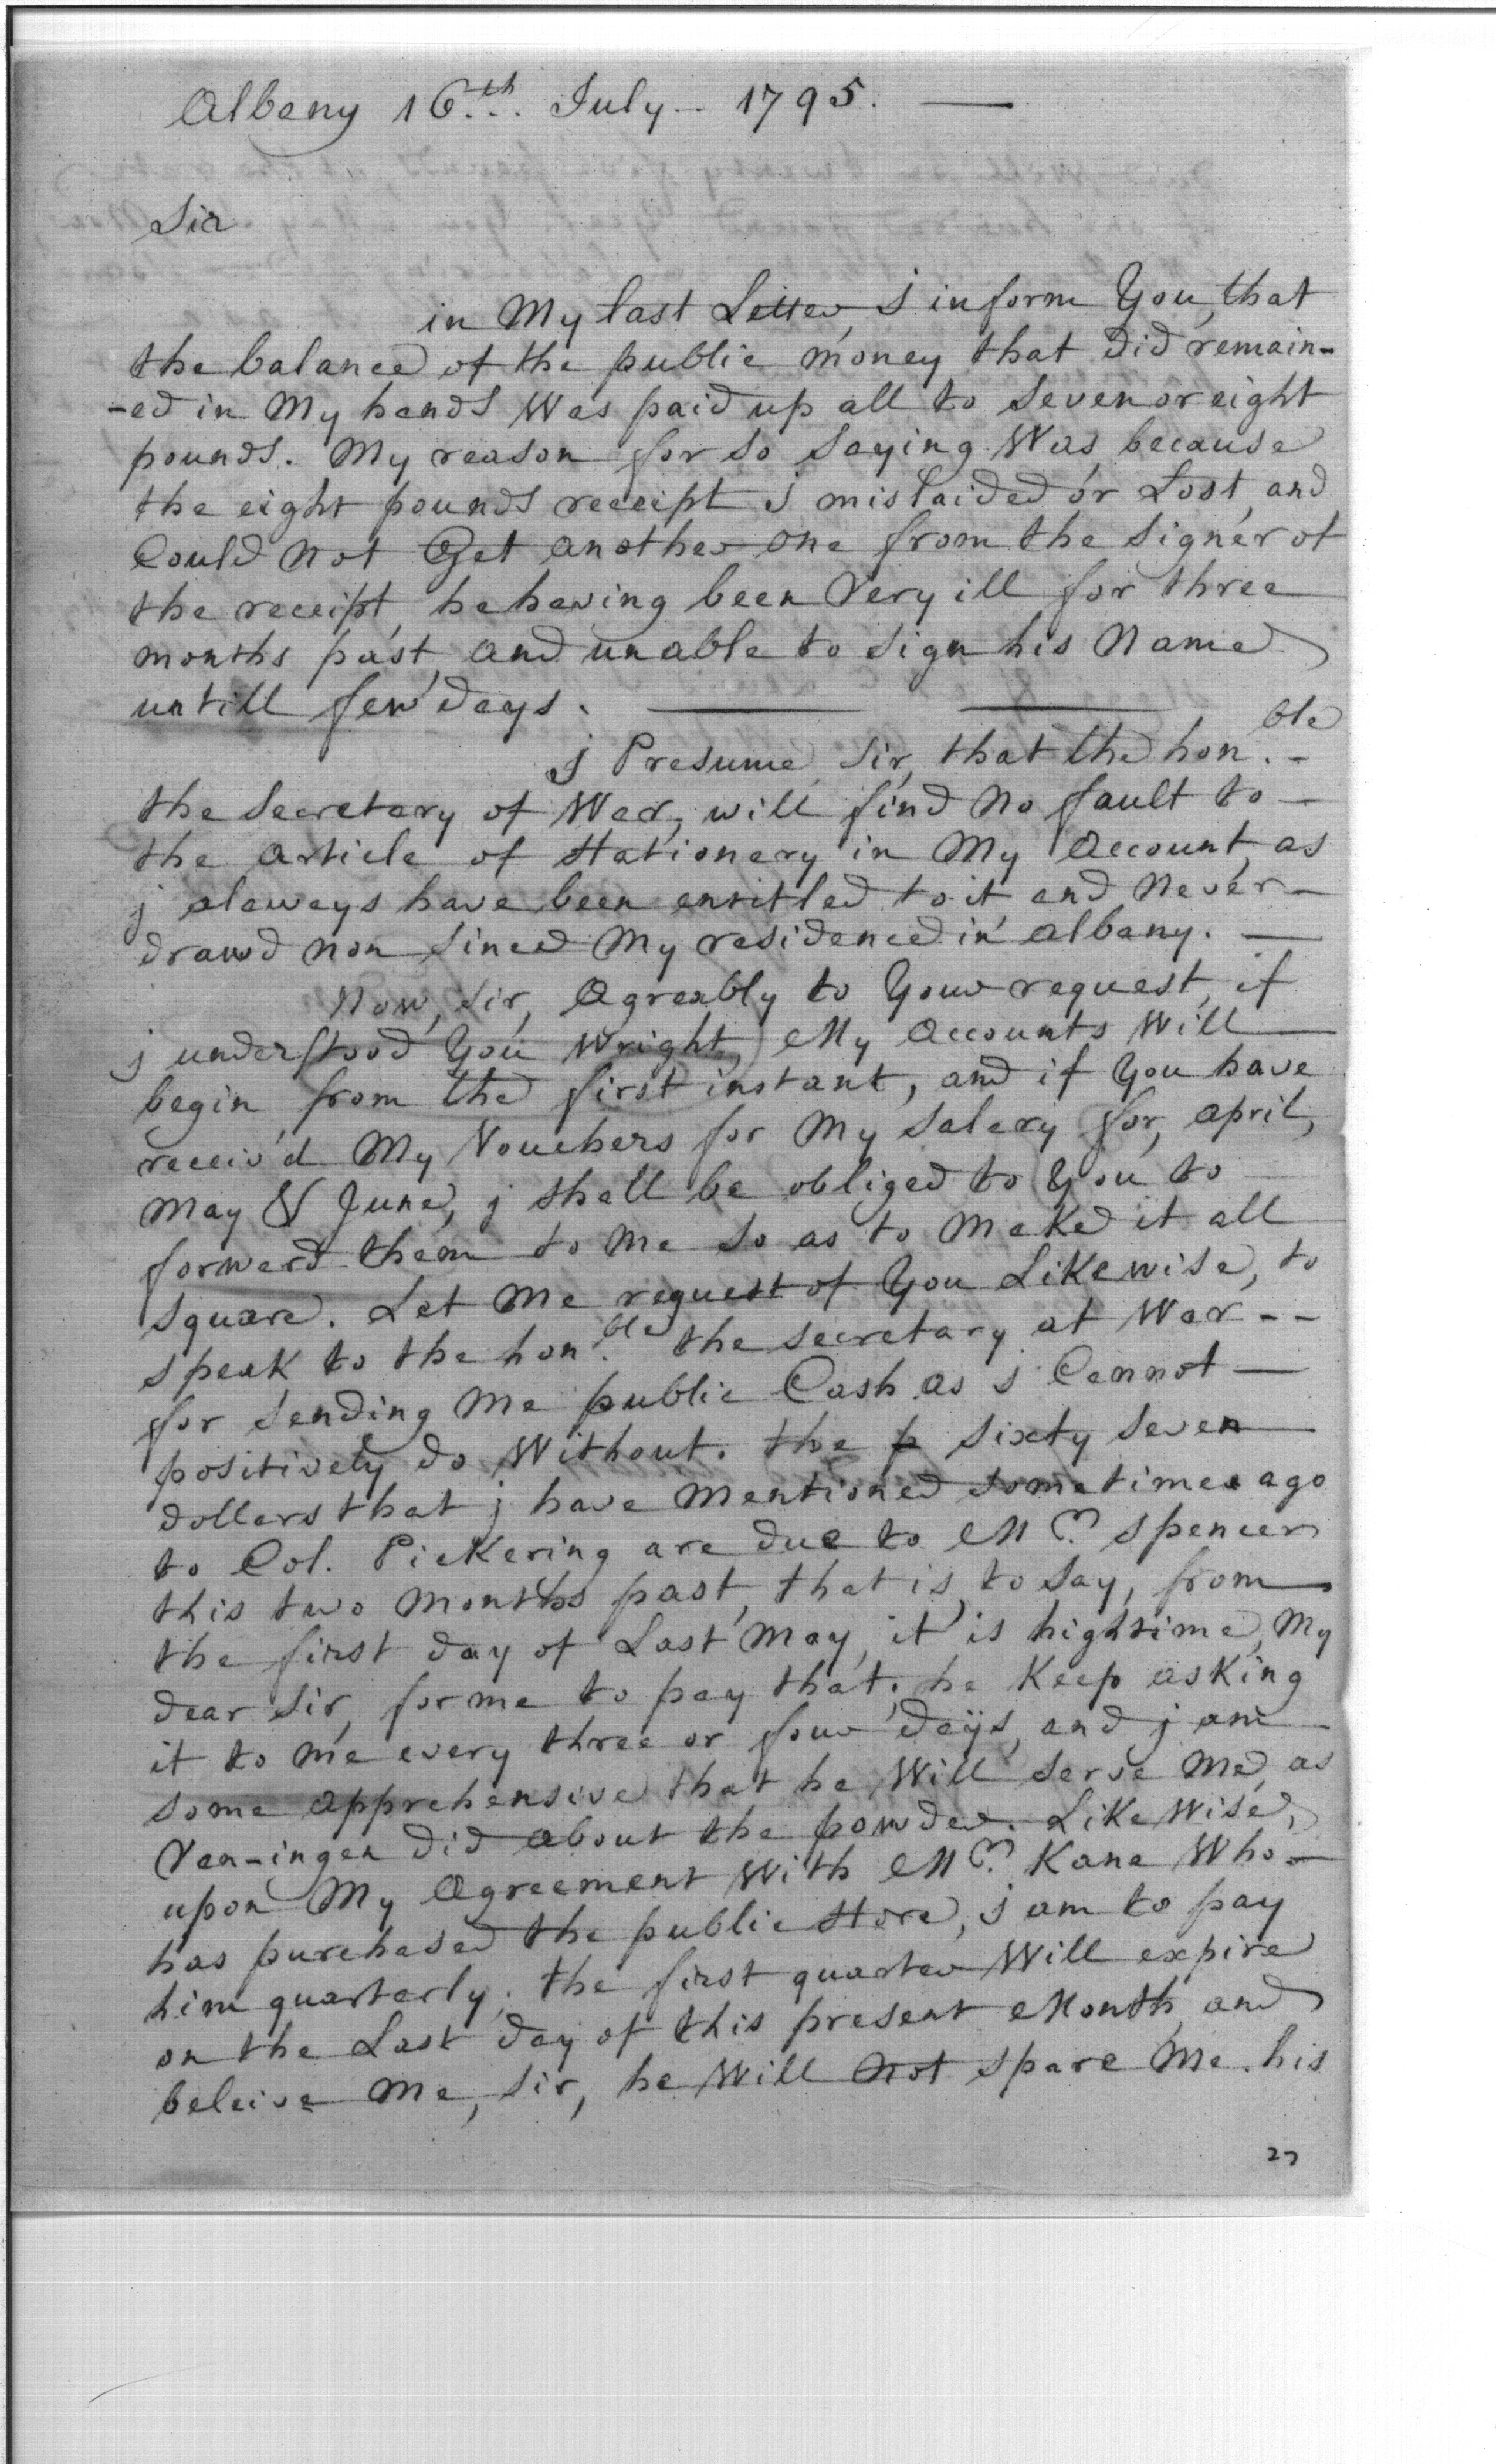 Albany 16th.. July-- 1795. —
Sir
in My last Letter, j inform You, that
the balance of the public money that did remain-
-ed in My hands Was paid up all to Seven or eight
pounds. My reason for so Saying Was because
the eight pounds receipt j mislaided or Lost, and
Could not Get another one from the Signer of
the receipt, he having been Very ill for three
months past, and unable to Sign his Name
untill few days. — —
j Presume, Sir, that the hon.ble -
the Secretary of War, will find no fault to -
the article of Stationery in My Account, as
j aleways have been entitled to it and Never -
drawd non Since My residence in albany. —
Now, Sir, Agreably to Your request, if
j understood You Wright, My Accounts Will —
begin from the first instant, and if You have
receiv'd My Vouchers for My Salery for, april,
May & June, j shall be obliged to You to
forward them to Me So as to Make it all
Square. Let Me request of You Likewise, to
speak to the hon.ble the Secretary at War --
for sending Me public Cash as j Cannot —
positively do Without. the p sixty Seven
dollars that j have Mentioned sometimes ago
to Col. Pickering are due to Mr. Spencer
this two Months past, that is, to Say, from
the first day of Last May, it is hightime, My
dear Sir, for me to pay that. he Keep asking
it to Me every three or four dayS, and j am
some apprehensive that he Will Serve Me, as
Van-ingen did about the powder. LikeWise,
upon My Agreement With Mr. Kane Who -
has purchased the public Store, j am to pay
him quarterly. the first quarter Will expire
on the Last day of this present Month, and
beleive Me, Sir, he Will Not spare Me. his
27